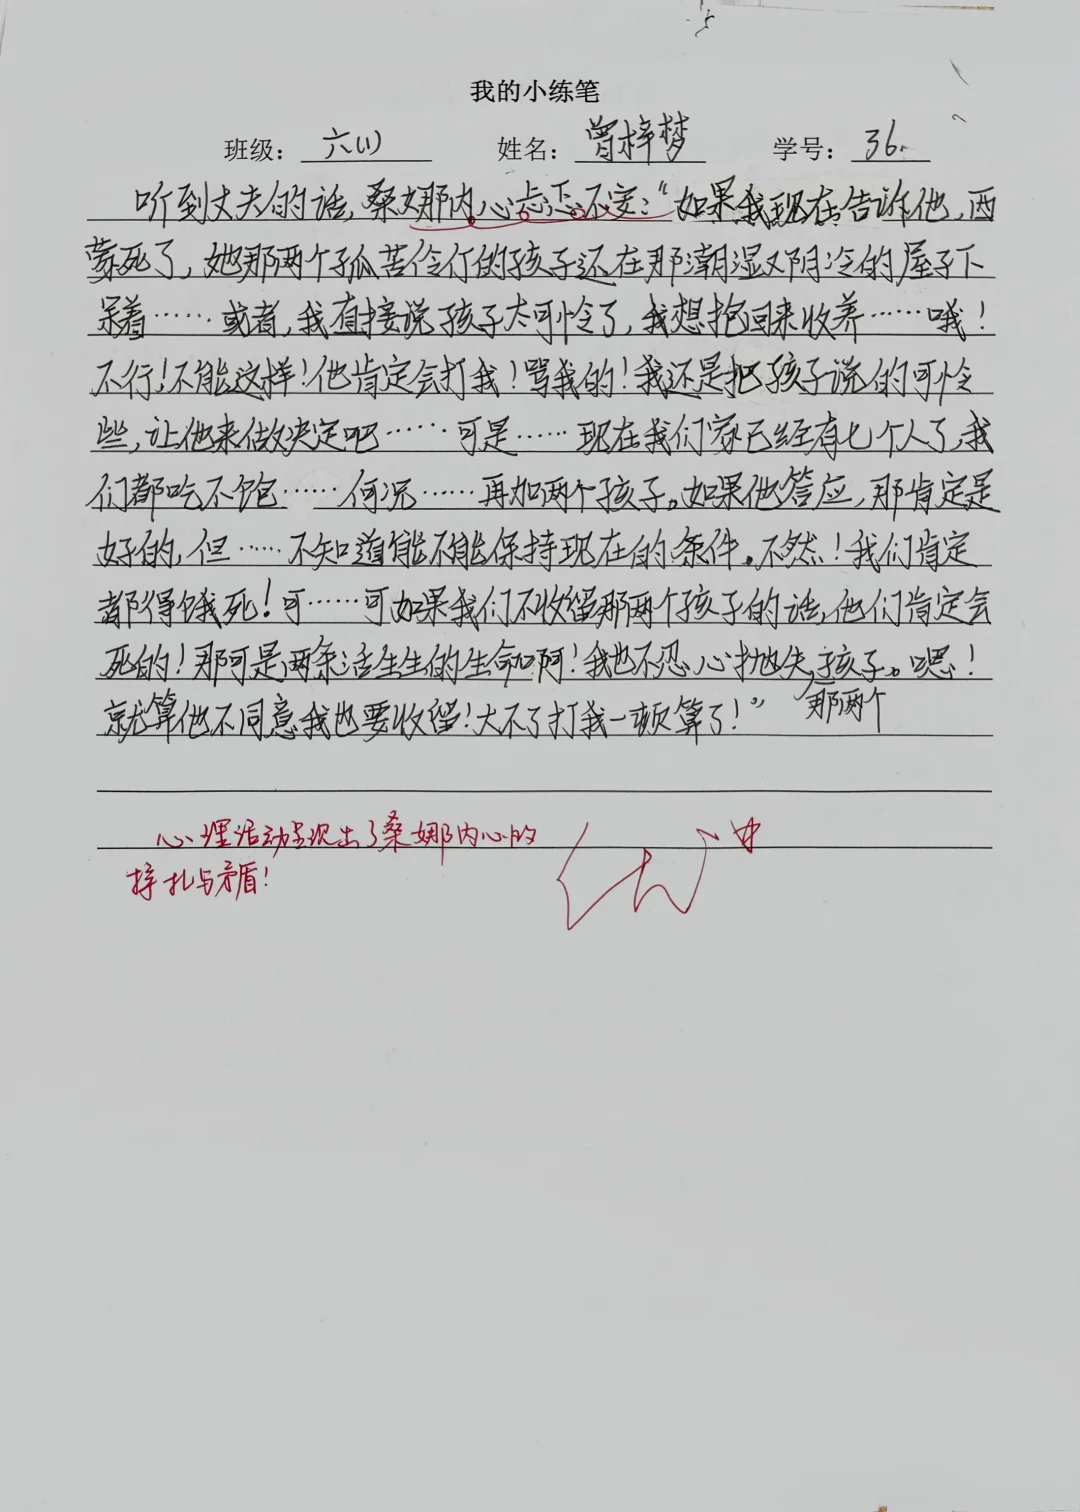 我的小练笔
班级：六(1) 姓名：曾梓梦 学号：36.
听到丈夫的话,桑娜内心忐忑不安:“如果我现在告诉他,西
蒙死了,她那两个孤苦伶仃的孩子还在那潮湿又阴冷的屋子下
呆着……或者,我直接说孩子太可怜了,我想抱回来收养……哦!
不行!不能这样!他肯定会打我!骂我的!我还是把孩子说的可怜
些,让他来做决定吧……可是……现在我们家已经有七个人了,我
们都吃不饱……何况……再加两个孩子。如果他答应,那肯定是
好的,但……不知道能不能保持现在的条件。不然!我们肯定
都得饿死!可……可如果我们不收留那两个孩子的话,他们肯定会
死的!那可是两条活生生的生命啊!我也不忍心抛失那两个孩子。嗯!
就算他不同意我也要收留!大不了打我一顿算了!”
心理活动呈现出了桑娜内心的
挣扎与矛盾!
优